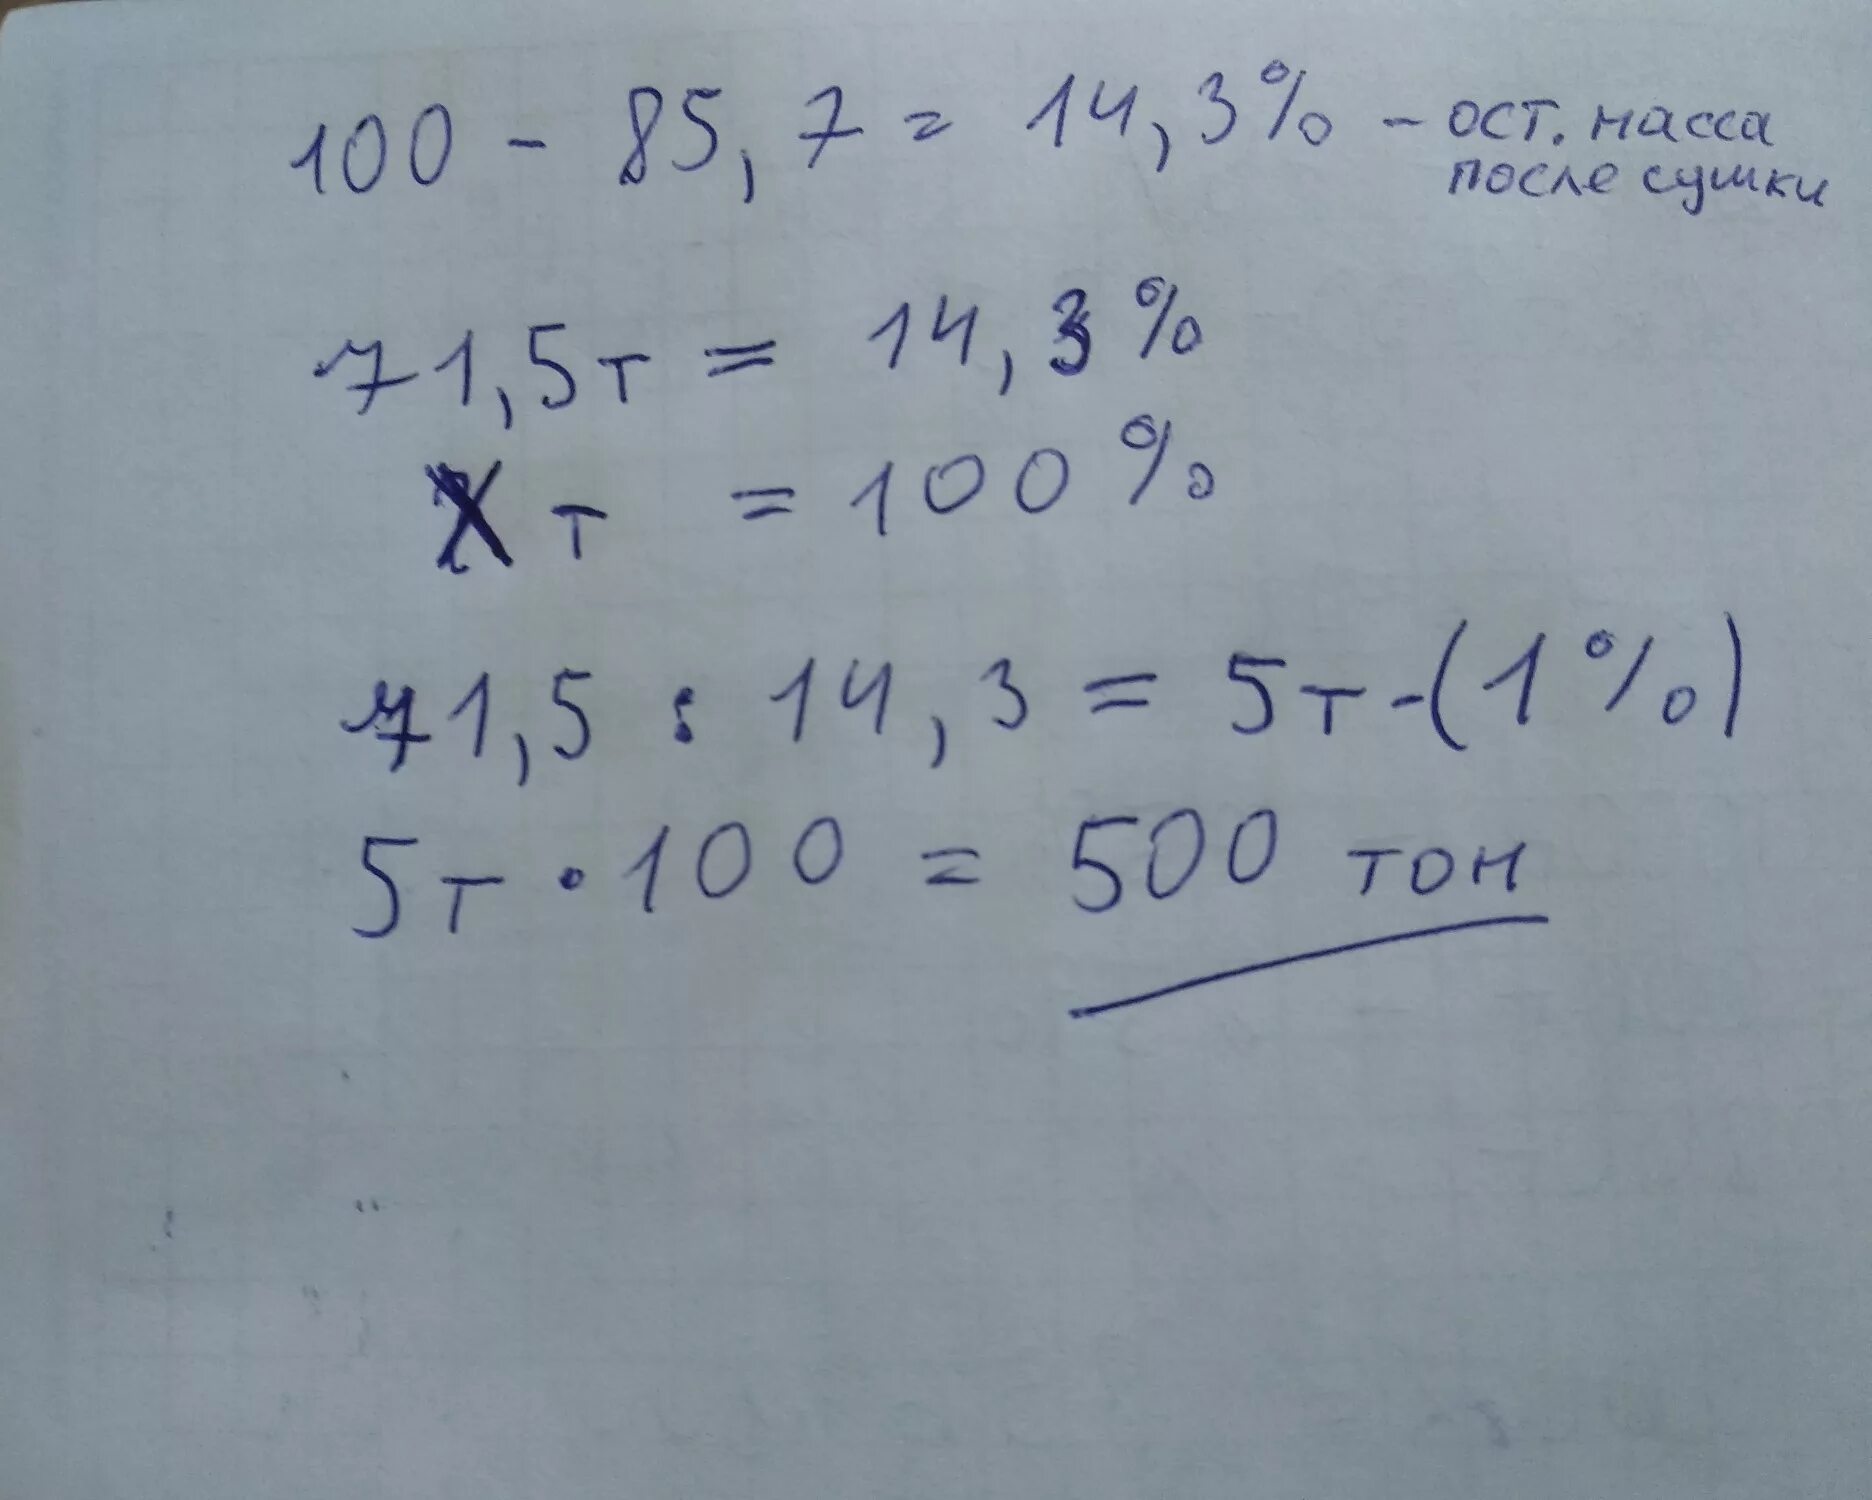 100 - 85,7 = 14,3% - ост. масса
после сушки
71,5т = 14,3%
X т = 100%
71,5 : 14,3 = 5т-(1%)
5т • 100 = 500 тон